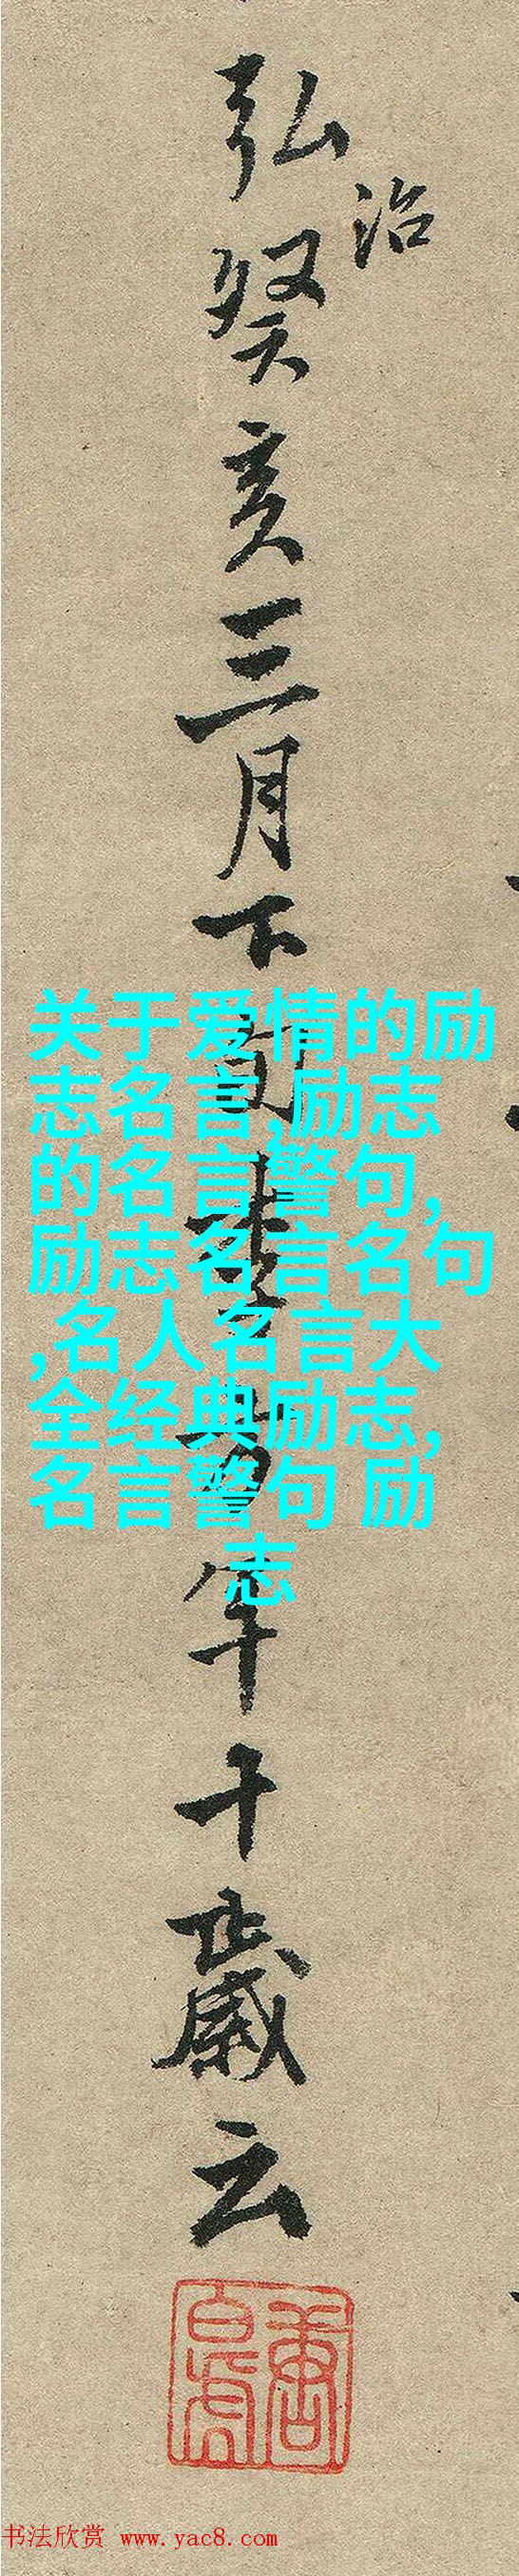 弘治癸亥三月下旬年十歲云
关于爱情的励
志名言,励志
的名言警句,
励志名言名句
,名人名言大
全经典励志,
名言警句 励
志
唐白虎
书法欣赏 www.yac8.com